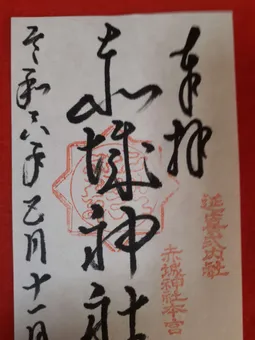 奉拝
延喜式内社
赤城神社本宮
赤城神社
令和六年 月十一日